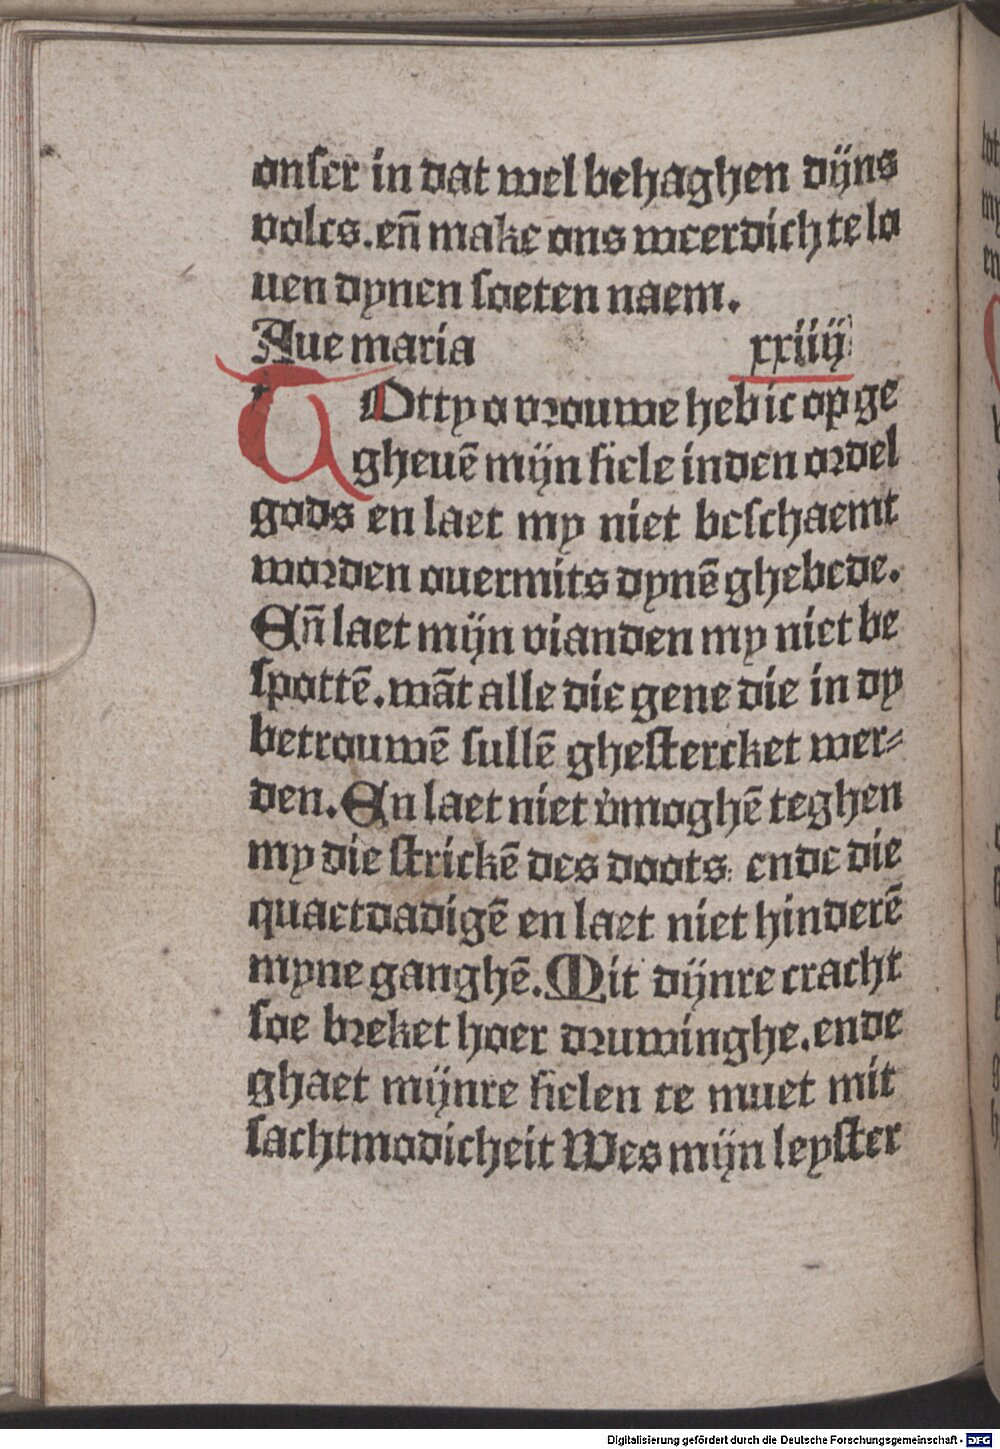 onser in dat wel behaghen dijns
volcs. en̄ make ons weerdich te lo
uen dynen soeten naem.
Aue maria xxiiij
TOtty o vrouwe heb ic op ge
gheuē mijn siele in den ordel
gods en laet my niet beschaemt
worden ouermits dynē ghebede.
En̄ laet mijn vianden my niet be
spottē. wāt alle die gene die in dy
betrouwē sullē ghestercket wer⸗
den. En laet niet v̓moghē teghen
my die strickē des doots: ende die
quaetdadigē en laet niet hinderē
myne ganghē. Mit dijnre cracht
soe breket hoer druwinghe. ende
ghaet mijnre sielen te muet mit
sachtmodicheit Wes mijn leyster
Digitalisierung gefördert durch die Deutsche Forschungsgemeinschaft - DFG